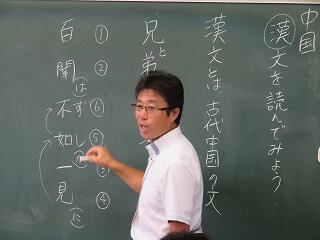 中国
漢文を読んでみよう
漢文とは 古代中国の文
兄と弟
①②⑥⑤③④
百聞は不ず如し一見に